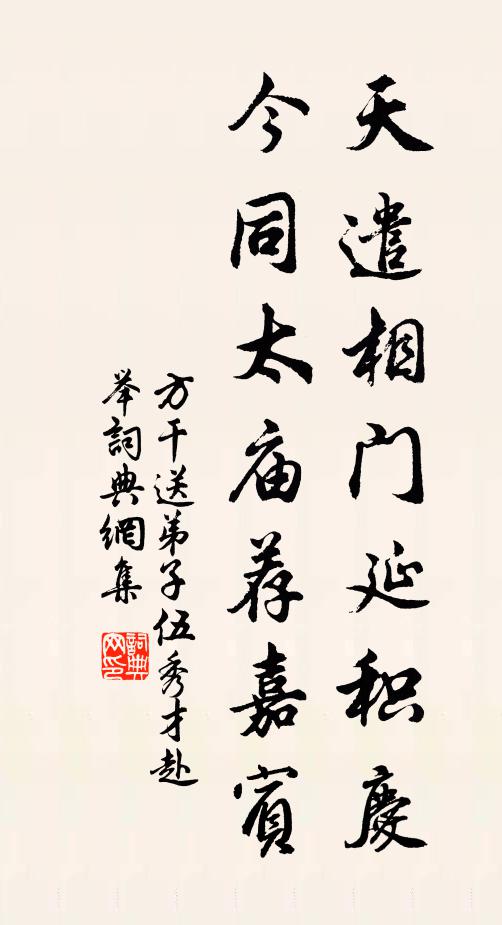 天遣相门延积慶
今同太庙荐嘉賓
方干送弟子伍秀才赴
举詞典網集
詞典网印